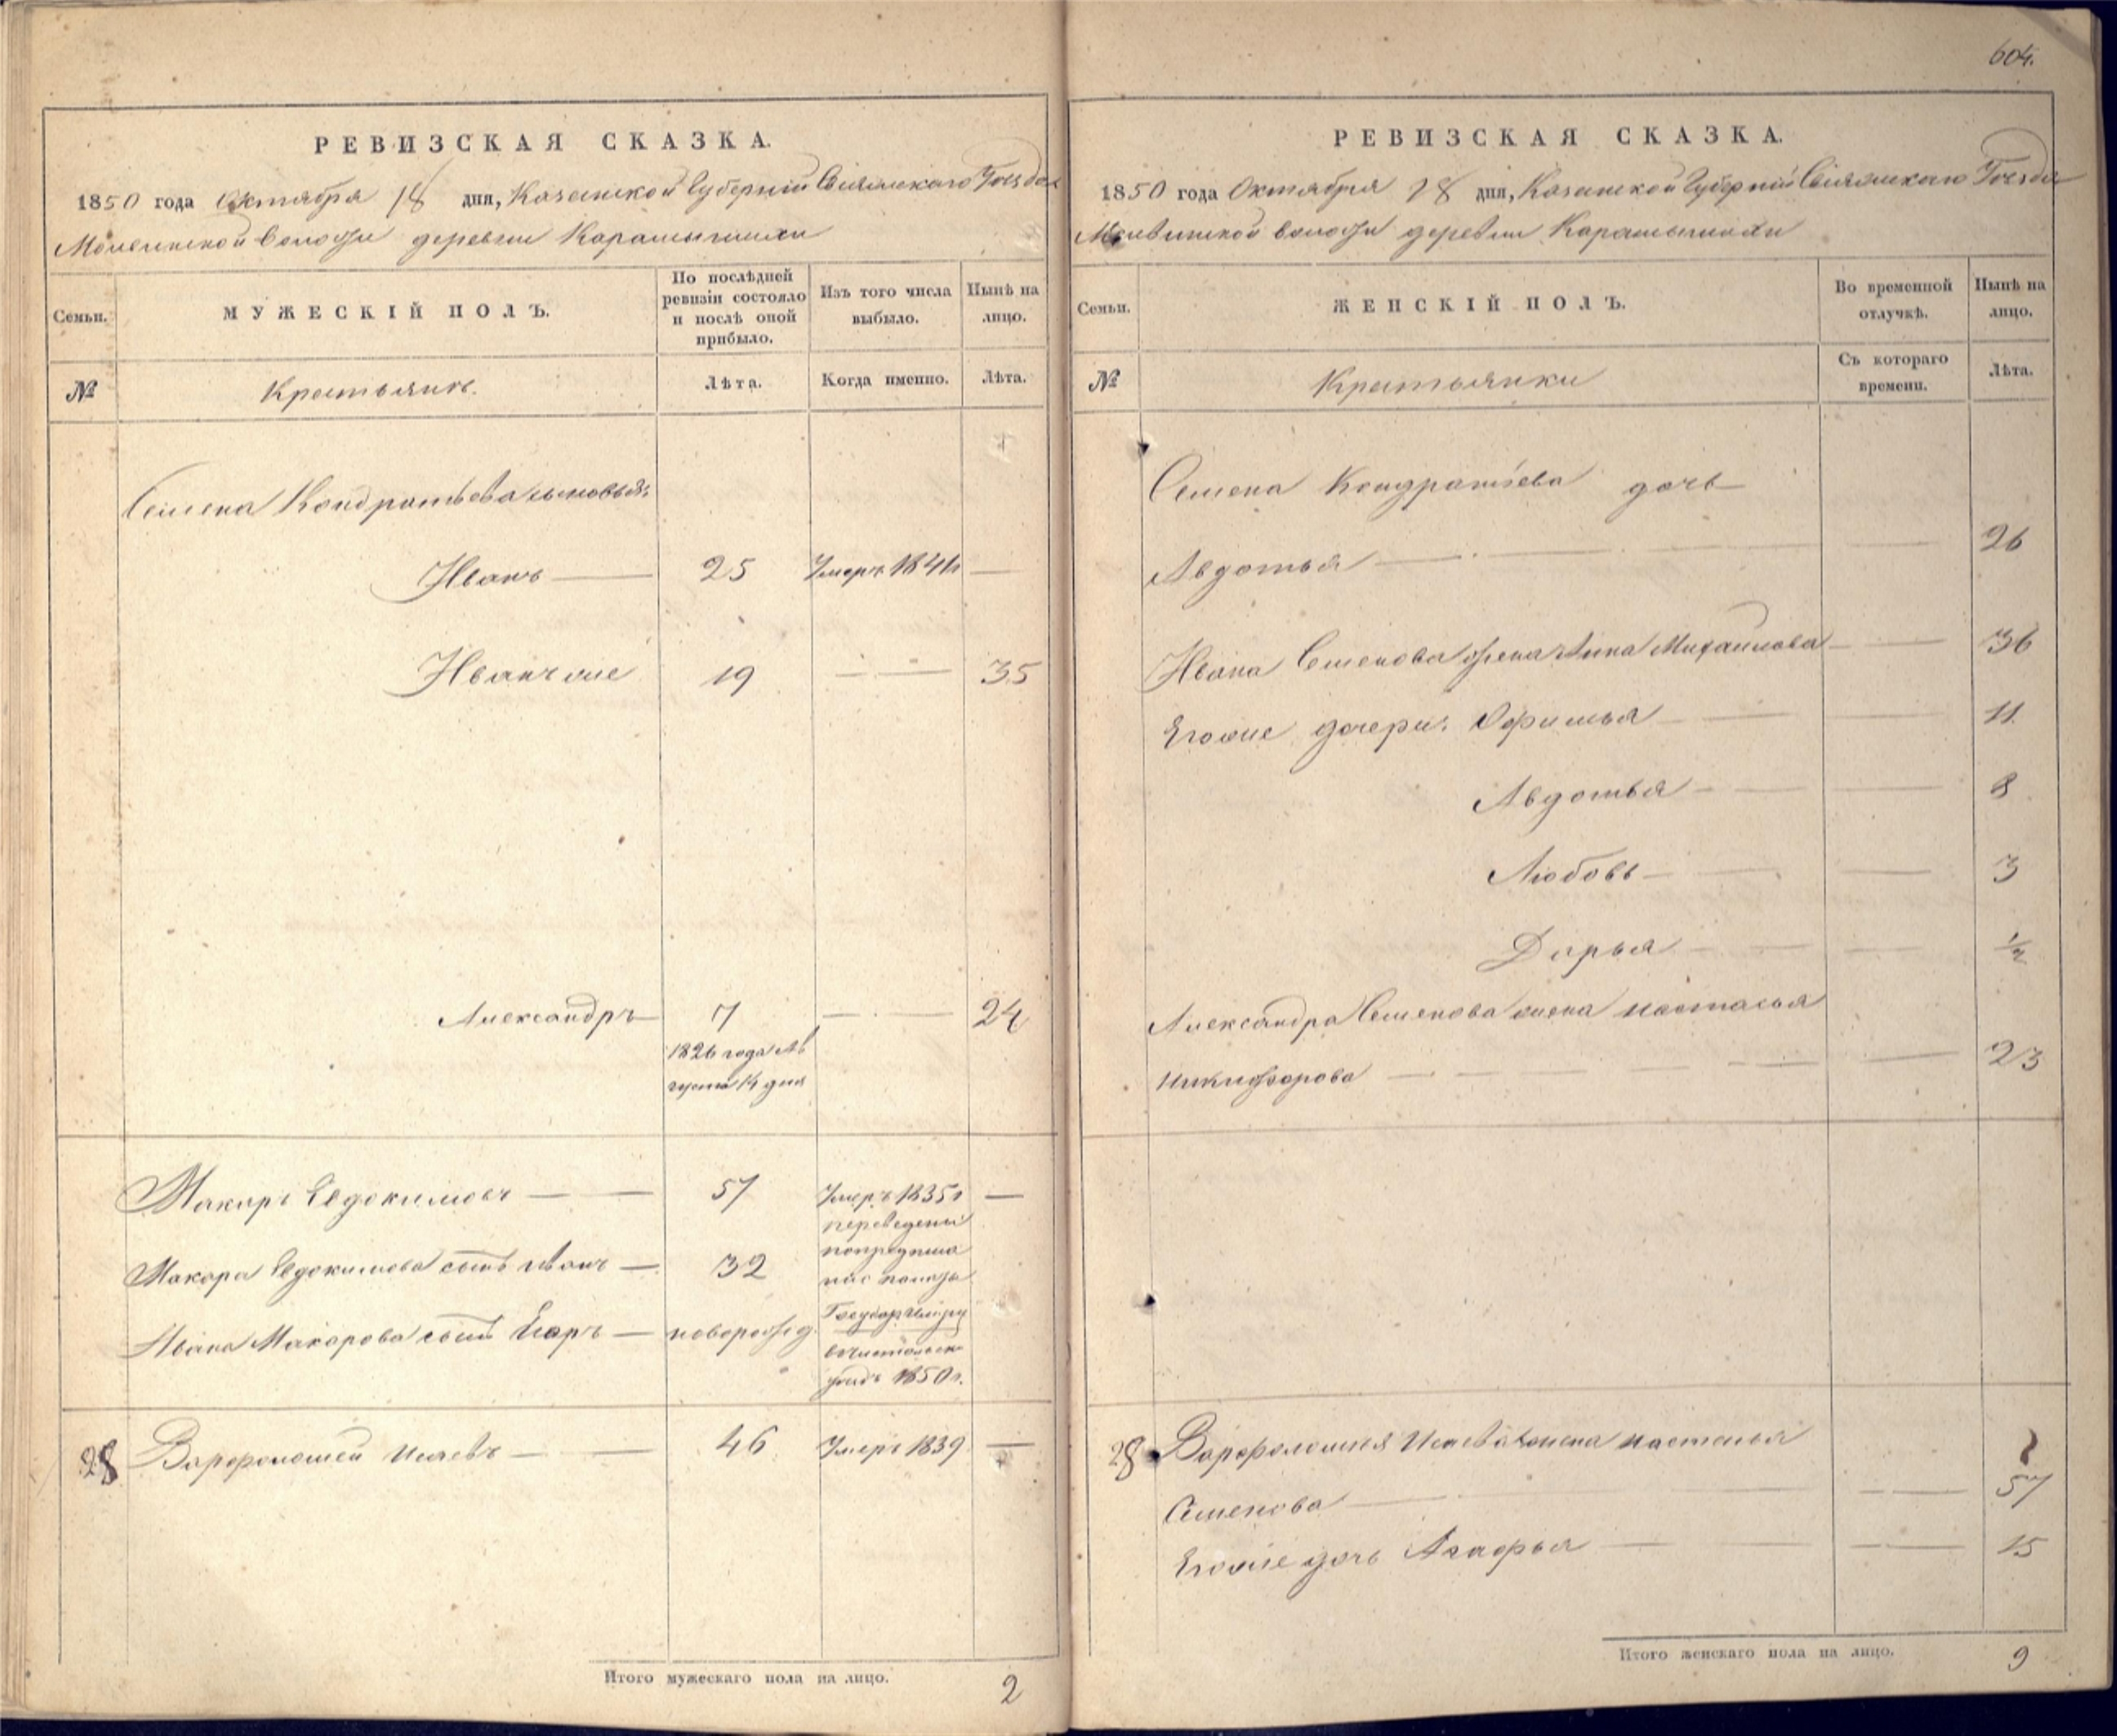 604.
РЕВИЗСКАЯ СКАЗКА.
1850 года Октября 18 дня, Казанской Губернии Свіяжскаго Уезда
волости деревни Карамышихи
Семьи.
МУЖЕСКІЙ ПОЛЪ.
По послѣдней ревизіи состояло и послѣ оной прибыло.
Изъ того числа выбыло.
Нынѣ на лицо.
№
Крестьянъ.
Лѣта.
Когда именно.
Лѣта.
Семена Кондратьева сыновья:
Иванъ — 25 Умеръ 1841г —
Иванъ же 19 — — 35
Александръ — 7 — — 24
1826 года Ав
густа 14 дня
Макаръ Евдокимовъ — — 57 Умеръ 1835г —
Макара Евдокимова сынъ Иванъ — 32
переведены
Ивана Макарова сынъ Егоръ — новорожд.
1850г.
28 Варфоломей Исаевъ — — 46 Умеръ 1839 —
Итого мужескаго пола на лицо. 2
РЕВИЗСКАЯ СКАЗКА.
1850 года Октября 18 дня, Казанской Губернии Свіяжскаго Уезда
волости деревни Карамышихи
Семьи.
ЖЕНСКІЙ ПОЛЪ.
Во временной отлучкѣ.
Нынѣ на лицо.
№
Крестьянки
Съ котораго времени.
Лѣта.
Семена Кондратьева дочь
Авдотья — 26
Ивана Семенова жена Анна Михаилова — 36
Егоже дочери: Офимья — 11
Авдотья — 8
Любовь — 3
Дарья — 1/2
Александра Семенова жена Настасья
Никифорова — 23
28 Варфоломея Исаева жена Настасья
Семенова — 57
Егоже дочь Агафья — 15
Итого женскаго пола на лицо. 9